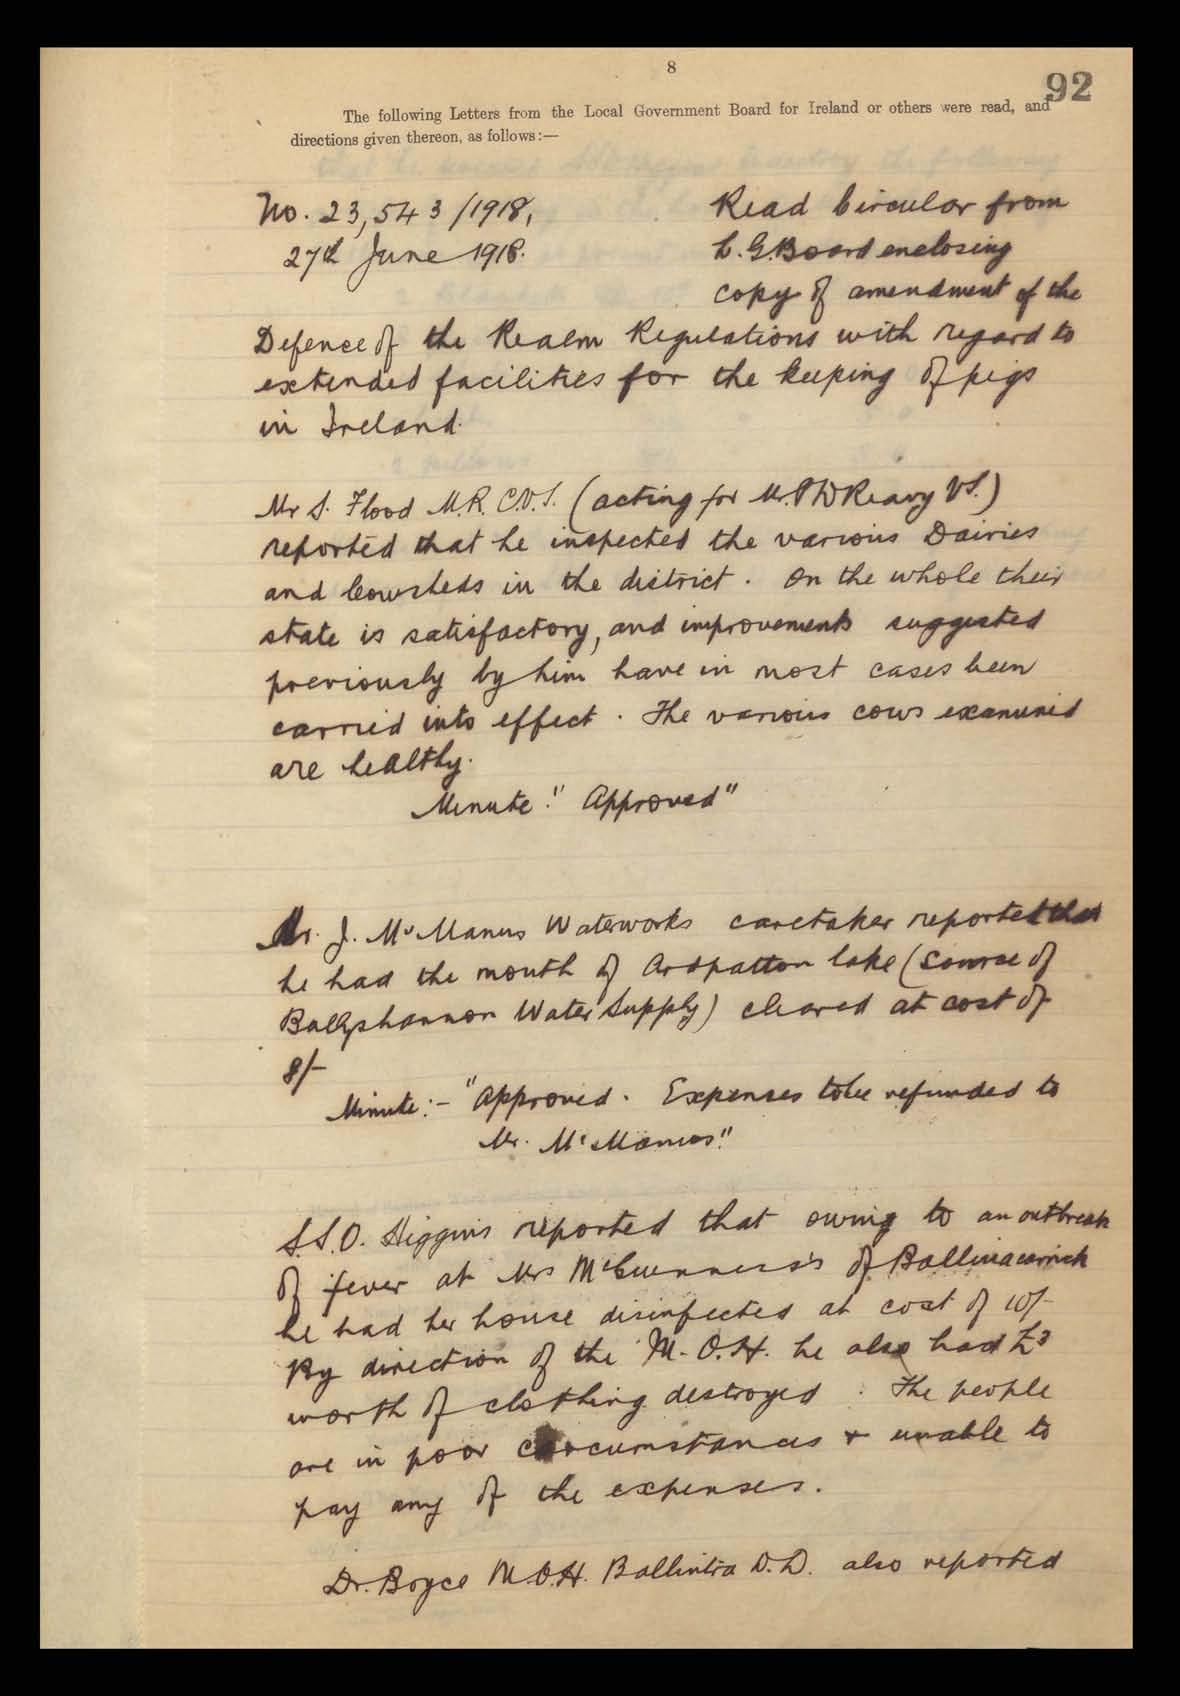 8
92
The following Letters from the Local Government Board for Ireland or others were read, and
directions given thereon, as follows:—
No. 23,543/1918, Read Circular from
27th June 1918. L.G.Board enclosing
copy of amendment of the
Defence of the Realm Regulations with regard to
extended facilities for the keeping of pigs
in Ireland.
Mr S. Flood M.R.C.V.S. (acting for Mr. P W Reavy VS.)
reported that he inspected the various Dairies
and Cowsheds in the district. On the whole their
state is satisfactory, and improvements suggested
previously by him have in most cases been
carried into effect. The various cows examined
are healthy.
Minute: "Approved"
Mr. J. McManus Waterworks caretaker reported that
he had the mouth of Ardpatton lake (source of
Ballyshannon Water Supply) cleared at cost of
8/-
Minute:- "Approved. Expenses to be refunded to
Mr. McManus."
S.S.O. Higgins reported that owing to an outbreak
of fever at Mrs McGuinness's of Ballinacarrick
he had her house disinfected at cost of 10/-
By direction of the M.O.H. he also had £3
worth of clothing destroyed. The people
are in poor circumstances + unable to
pay any of the expenses.
Dr. Boyce M.O.H. Ballintra D.D. also reported